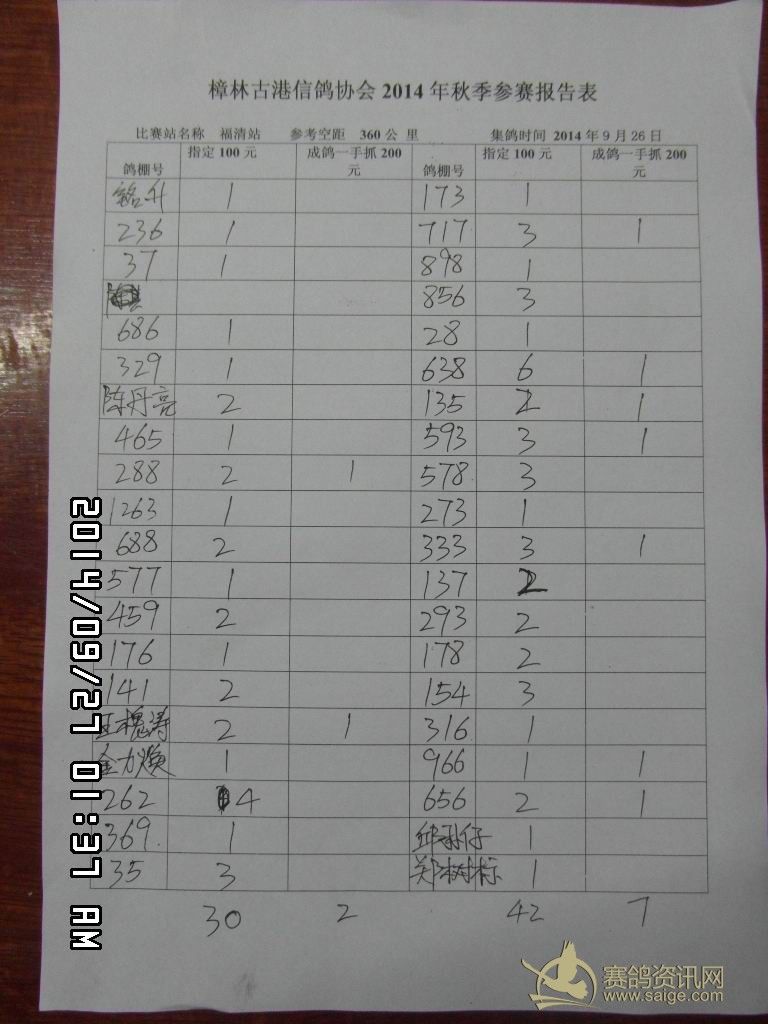 樟林古港信鸽协会 2014 年秋季参赛报告表
比赛站名称 福清站 参考空距 360 公 里 集鸽时间 2014 年 9 月 26 日
鸽棚号 指定 100 元 成鸽一手抓 200 元 鸽棚号 指定 100 元 成鸽一手抓 200 元
铭升 1 173 1
236 1 717 3 1
37 1 898 1
856 3
686 1 28 1
329 1 638 6 1
陈丹亮 2 135 2 1
465 1 593 3 1
288 2 1 578 3
1263 1 273 1
688 2 333 3 1
577 1 137 2
459 2 293 2
176 1 178 2
141 2 154 3
王槐涛 2 1 316 1
金力焕 1 966 1 1
262 4 656 2 1
369 1 邱孙仔 1
35 3 郑树标 1
30 2 42 7
2014/09/27 01:37 AM
赛鸽资讯网
www.saige.com